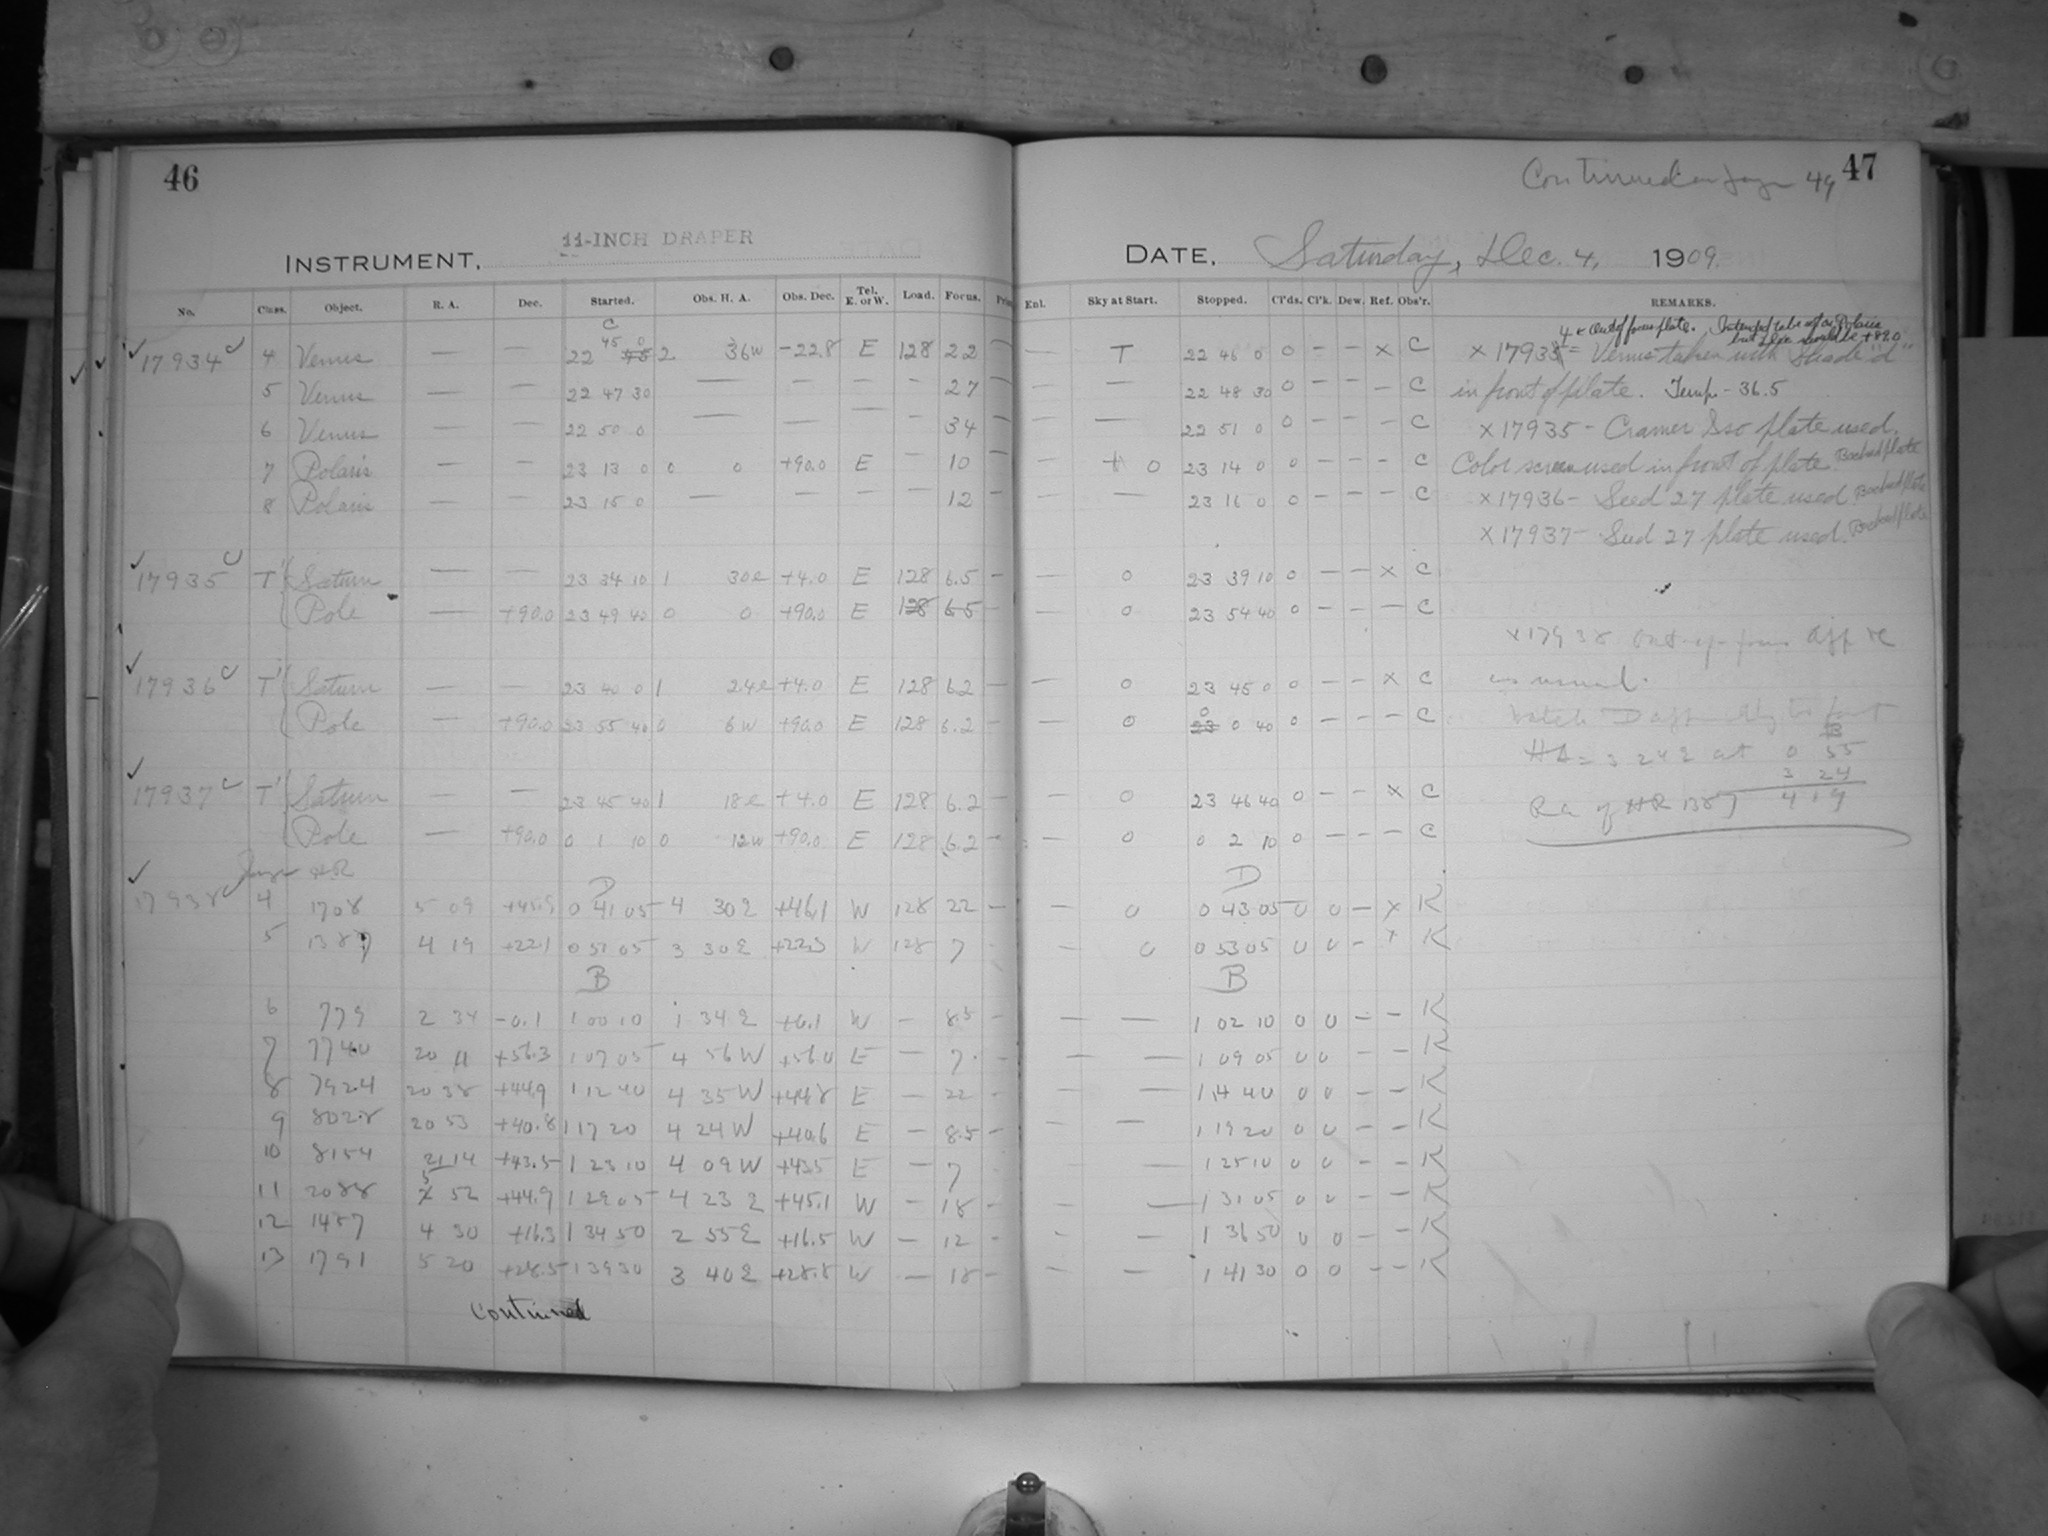 46
11-INCH DRAPER
INSTRUMENT.
No. Class. Object. R. A. Dec. Started. Obs. H. A. Obs. Dec. Tel. E. or W. Load. Focus.
C
17934 4 Venus — — 22 45 0 2 36W -22.8 E 128 22
5 Venus — — 22 47 30 — — — — 27
6 Venus — — 22 50 0 — — — — 34
7 Polaris — — 23 13 0 0 0 +90.0 E — 10
8 Polaris — — 23 15 0 — — — — 12
17935 T' Saturn — — 23 34 10 1 30e +4.0 E 128 6.5 —
Pole — +90.0 23 49 40 0 0 +90.0 E 128 6.5 —
17936 T' Saturn — — 23 40 0 1 24e +4.0 E 128 6.2 —
Pole — +90.0 23 55 40 0 6W +90.0 E 128 6.2 —
17937 T' Saturn — — 23 45 40 1 18e +4.0 E 128 6.2 —
Pole — +90.0 0 1 10 0 12W +90.0 E 128 6.2 —
HR D
17938 4 1708 5 09 +45.9 0 41 05 4 30E +46.1 W 128 22 —
5 1387 4 19 +22.1 0 51 05 3 30E +22.3 W 128 7 -
B
6 779 2 34 -0.1 1 00 10 1 34E +0.1 W — 8.5 -
7 7740 20 11 +56.3 1 07 05 4 56W +56.0 E — 7 -
8 7924 20 38 +44.9 1 12 40 4 35W +44.8 E — 22 -
9 8028 20 53 +40.8 1 17 20 4 24W +40.6 E — 8.5 -
10 8154 21 14 +43.5 1 23 10 4 09W +43.5 E — 7
11 2088 5 52 +44.9 1 29 05 4 23E +45.1 W — 18 -
12 1457 4 30 +16.3 1 34 50 2 55E +16.5 W — 12 -
13 1791 5 20 +28.5 1 39 30 3 40E +28.8 W — 18 -
Continued
Continued on page 49 47
DATE. Saturday, Dec. 4, 1909.
Enl. Sky at Start. Stopped. Cl'ds. Cl'k. Dew. Ref. Obs'r. REMARKS.
— T 22 46 0 0 — — x C
— — 22 48 30 0 — — — C
— — 22 51 0 0 — — — C
— 0 23 14 0 0 — — — C
— — 23 16 0 0 — — — C
— 0 23 39 10 0 — — x C
— 0 23 54 40 0 — — — C
— 0 23 45 0 0 — — x C
— 0 0 0 40 0 — — — C
— 0 23 46 40 0 — — x C
— 0 0 2 10 0 — — — C
D
0 0 43 05 0 0 — x K
— 0 0 53 05 0 0 — x K
B
— — 1 02 10 0 0 — — K
— — 1 09 05 0 0 — — K
— — 1 14 40 0 0 — — K
— — 1 19 20 0 0 — — K
— — 1 25 10 0 0 — — K
— — 1 31 05 0 0 — — K
— — 1 36 50 0 0 — — K
— — 1 41 30 0 0 — — K
4 & Out of focus plate. Intended to be set on Polaris
but Dec should be +89.0
x 17934 = Venus taken with Shade "d"
in front of plate. Temp - 36.5
x 17935 - Cramer Iso plate used.
Color screen used in front of plate. Backed plate
x 17936 - Seed 27 plate used. Backed plate
x 17937 - Seed 27 plate used. Backed plate
x 17938 Out-of-focus
as usual.
Watch D
HA = 3 24 E at 0 55
3 24
RA of HR 1387 4 19